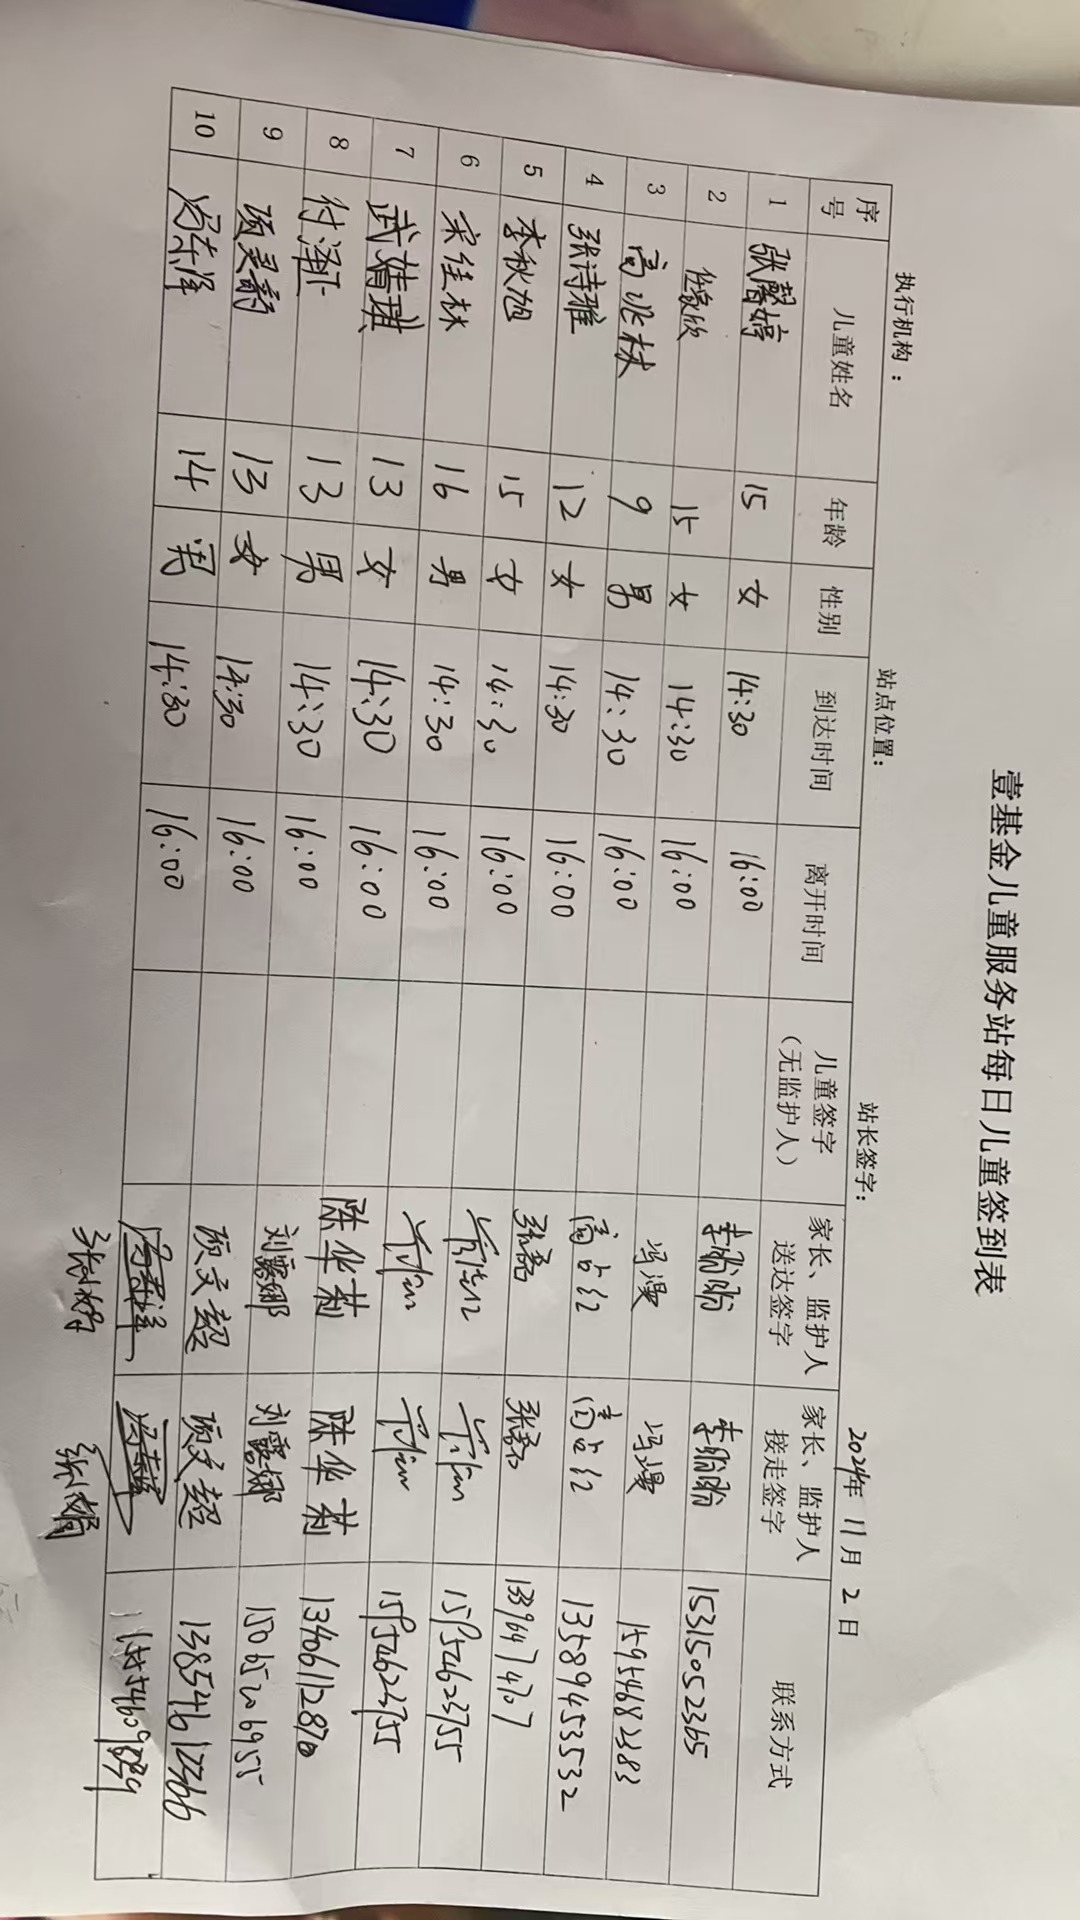 壹基金儿童服务站每日儿童签到表
执行机构： 站点位置： 站长签字： 2024年 11月 2日
序号 儿童姓名 年龄 性别 到达时间 离开时间 儿童签字（无监护人） 家长、监护人送达签字 家长、监护人接走签字 联系方式
1 张馨婷 15 女 14:30 16:00 李盼盼 李盼盼 15315052365
2 欣 15 女 14:30 16:00 冯漫 冯漫 15954682383
3 高兆林 9 男 14:30 16:00 高占红 高占红 13589453532
4 张诗雅 12 女 14:30 16:00 张磊 张磊
5 李秋旭 15 女 14:30 16:00
6 宋佳林 16 男 14:30 16:00
7 武婧琪 13 女 14:30 16:00 陈华莉 陈华莉 13406112870
8 付泽 13 男 14:30 16:00 刘露娜 刘露娜 15065206955
9 项灵韵 13 女 14:30 16:00 项文超 项文超 13854612366
10 14 男 14:30 16:00